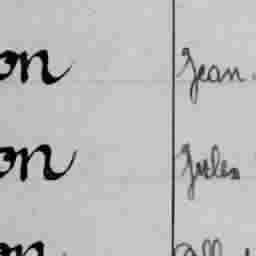 on Jean
on Jules
on